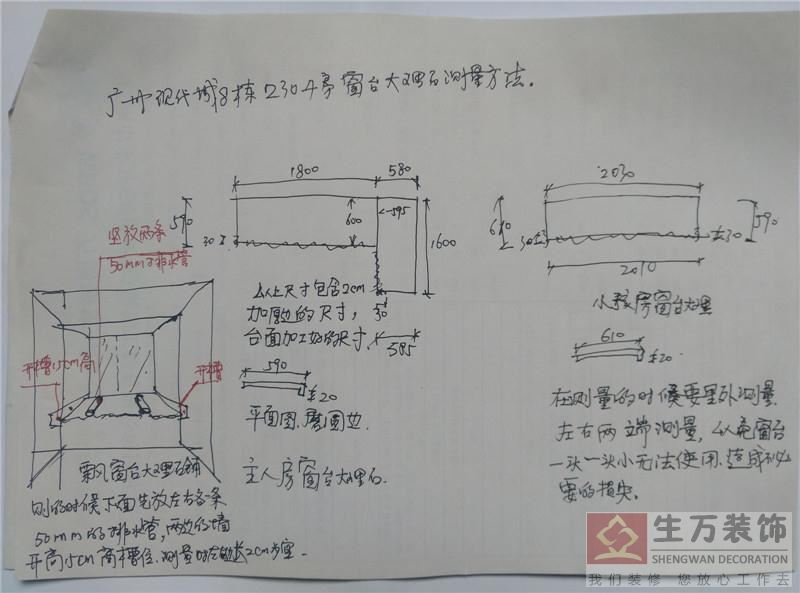 广州现代城8栋2304房窗台大理石测量方法.
1800
580
590
600
595
1600
30
30
585
以上尺寸包含2cm
加厚边的尺寸,
台面加工好的尺寸.
590
±20
平面图.磨圆边
主人房窗台大理石.
竖放两条
50mm的排水管
开槽15cm高
开槽
飘风窗台大理石铺
的时候下面先放左右各一条
50mm的排水管,两边的墙
开高15cm高槽位.测量时左右边长2cm为宜.
2030
610
590
30
±30
2010
小孩房窗台大理
610
±20
在测量的时候要里外测量
左右两端测量,以免窗台
一头一头小无法使用.造成不必
要的损失.
生万装饰
SHENGWAN DECORATION
我们装修 您放心工作去